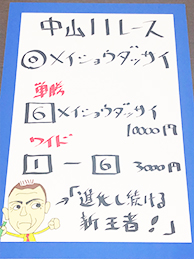 中山11レース
◎メイショウダッサイ
単勝
6 メイショウダッサイ
10000円
ワイド
1 − 6 3000円
→「進化し続ける
新王者!」